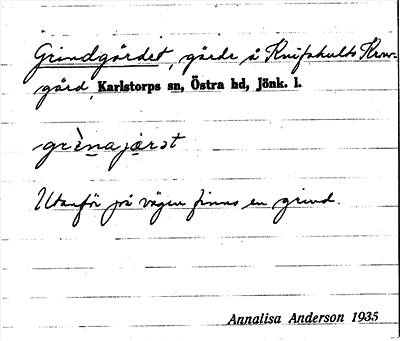 Grindgärdet, gärde å Knifshults Herr-
gård, Karlstorps sn, Östra hd, Jönk. l.
grènajærət
Utanför på vägen finns en grind.
Annalisa Anderson 1935